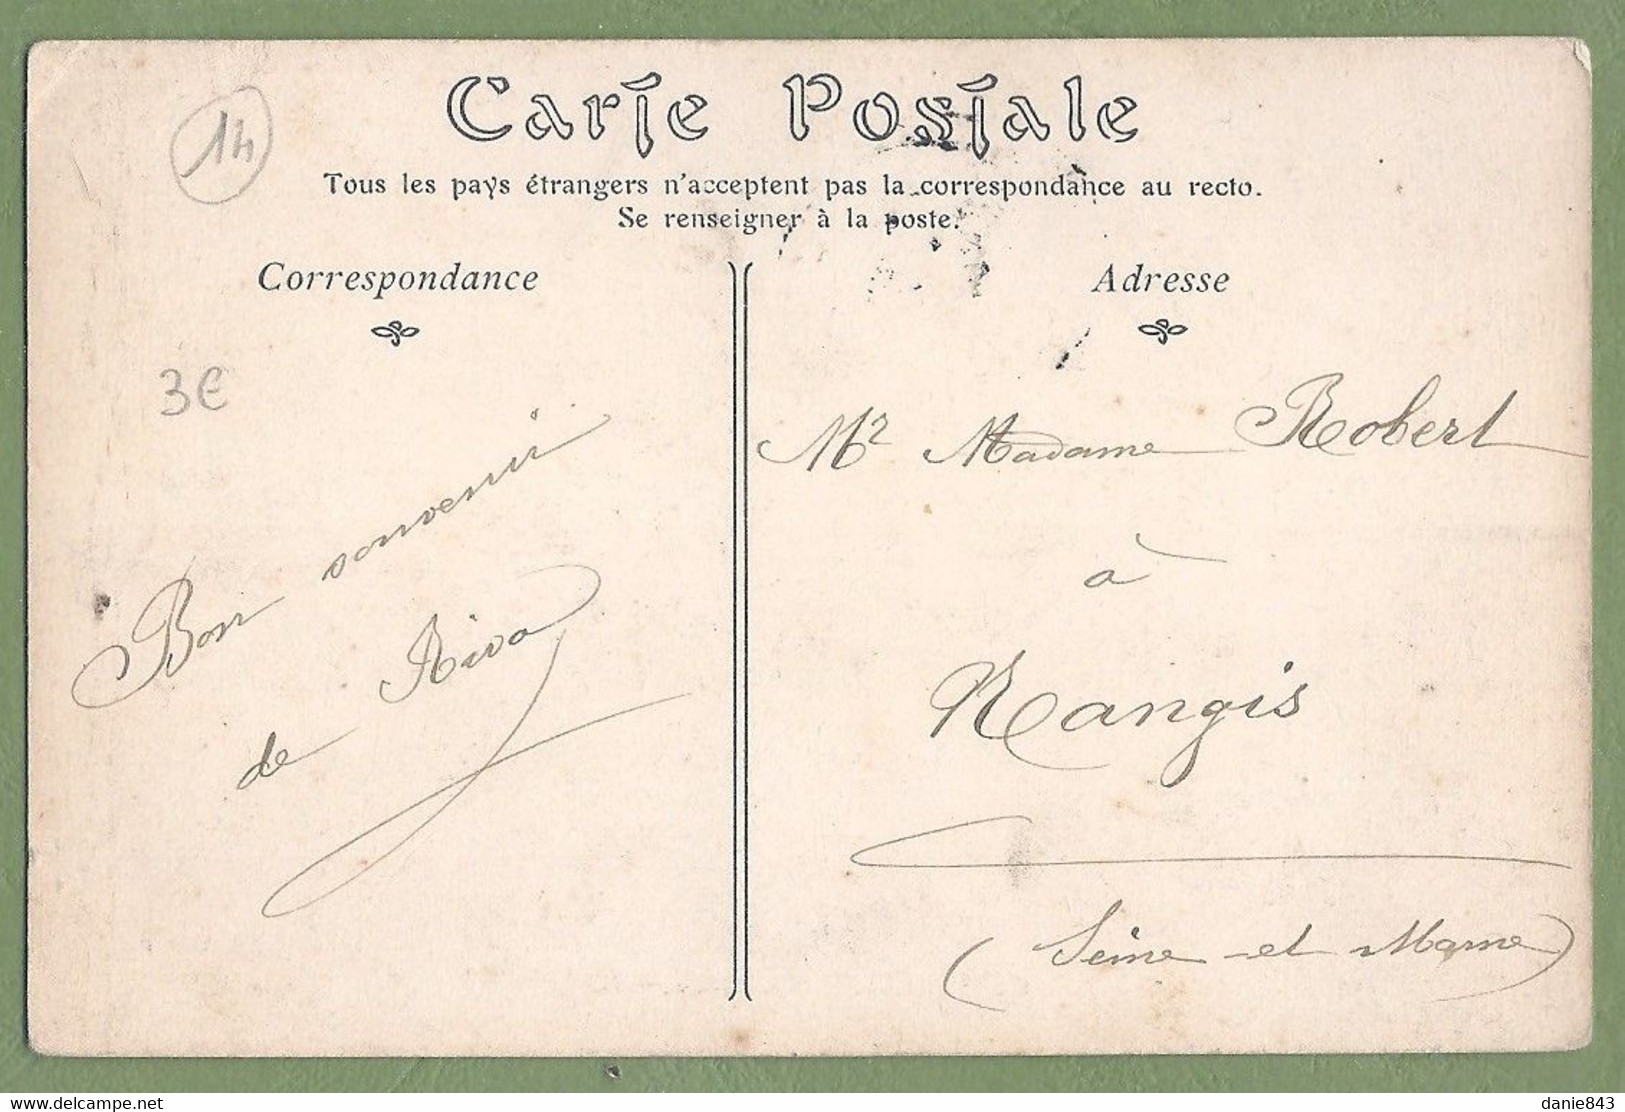 Carte Postale
14
Tous les pays étrangers n'acceptent pas la correspondance au recto.
Se renseigner à la poste.
Correspondance
3€
Bon souvenir
de Riva
Adresse
Mr Madame Robert
à
Rangis
(Seine et Marne)
www.delcampe.net
danie843